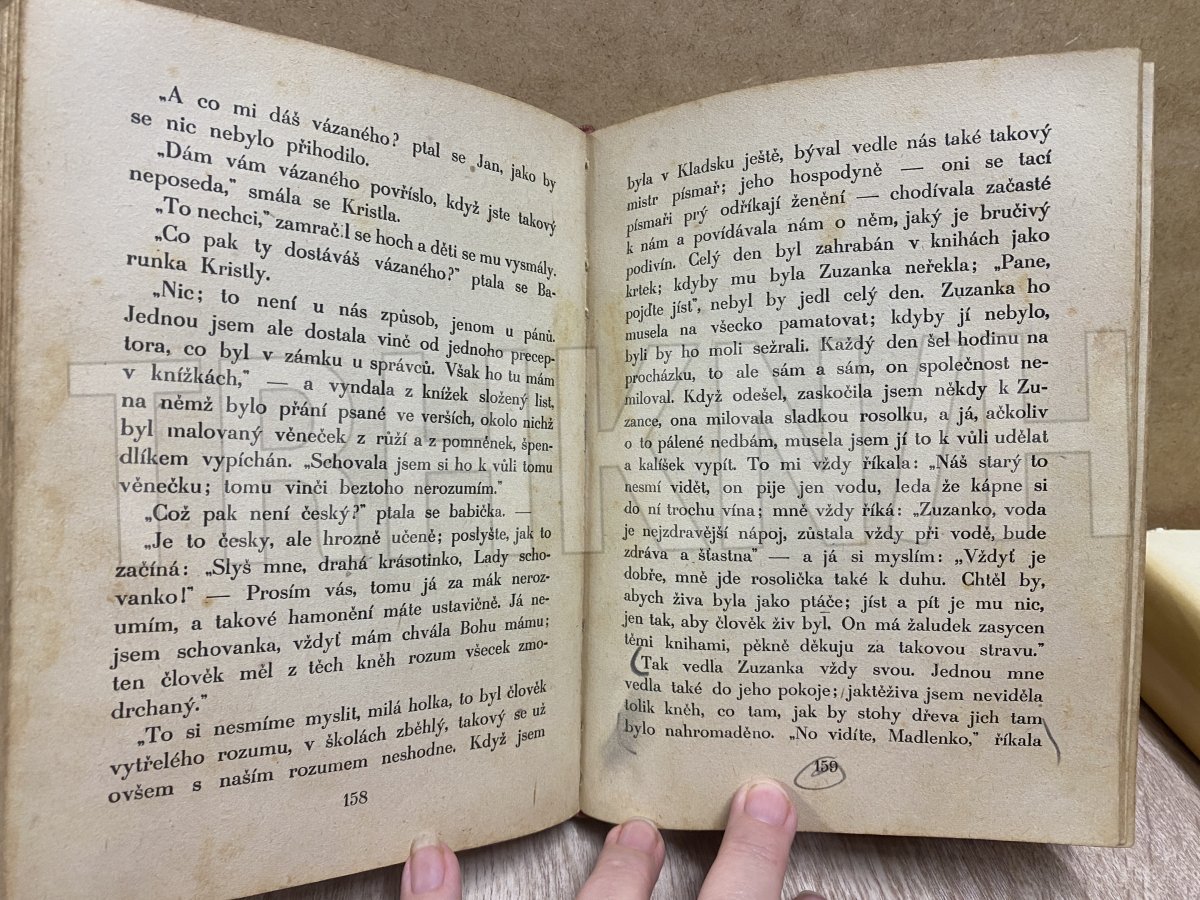 „A co mi dáš vázaného? ptal se Jan, jako by
se nic nebylo přihodilo.
„Dám vám vázaného povříslo, když jste takový
neposeda,“ smála se Kristla.
„To nechci,“ zamračil se hoch a děti se mu vysmály.
„Co pak ty dostáváš vázaného?“ ptala se Ba-
runka Kristly.
„Nic; to není u nás způsob, jenom u pánů.
Jednou jsem ale dostala vinč od jednoho precep-
tora, co byl v zámku u správců. Však ho tu mám
v knížkách,“ — a vyndala z knížek složený list,
na němž bylo přání psané ve verších, okolo nichž
byl malovaný věneček z růží a z pomněnek, špen-
dlíkem vypíchán. „Schovala jsem si ho k vůli tomu
věnečku; tomu vinči beztoho nerozumím.“
„Což pak není český?“ ptala se babička. —
„Je to česky, ale hrozně učeně; poslyšte, jak to
začíná: „Slyš mne, drahá krásotinko, Lady scho-
vanko!“ — Prosím vás, tomu já za mák neroz-
umím, a takové hamonění máte ustavičně. Já ne-
jsem schovanka, vždyť mám chvála Bohu mámu;
ten člověk měl z těch kněh rozum všecek zmo-
drchaný.“
„To si nesmíme myslit, milá holka, to byl člověk
vytřelého rozumu, v školách zběhlý, takový se už
ovšem s naším rozumem neshodne. Když jsem
158
byla v Kladsku ještě, býval vedle nás také takový
mistr písmař; jeho hospodyně — oni se tací
písmaři prý odříkají ženění — chodívala začasté
k nám a povídávala nám o něm, jaký je bručivý
podivín. Celý den byl zahrabán v knihách jako
krtek; kdyby mu byla Zuzanka neřekla; „Pane,
pojďte jíst“, nebyl by jedl celý den. Zuzanka ho
musela na všecko pamatovat; kdyby jí nebylo,
byli by ho moli sežrali. Každý den šel hodinu na
procházku, to ale sám a sám, on společnost ne-
miloval. Když odešel, zaskočila jsem někdy k Zu-
zance, ona milovala sladkou rosolku, a já, ačkoliv
o to pálené nedbám, musela jsem jí to k vůli udělat
a kalíšek vypít. To mi vždy říkala: „Náš starý to
nesmí vidět, on pije jen vodu, leda že kápne si
do ní trochu vína; mně vždy říká: „Zuzanko, voda
je nejzdravější nápoj, zůstala vždy při vodě, bude
zdráva a šťastna“ — a já si myslím: „Vždyť je
dobře, mně jde rosolička také k duhu. Chtěl by,
abych živa byla jako ptáče; jíst a pít je mu nic,
jen tak, aby člověk živ byl. On má žaludek zasycen
těmi knihami, pěkně děkuju za takovou stravu.“
Tak vedla Zuzanka vždy svou. Jednou mne
vedla také do jeho pokoje; jaktěživa jsem neviděla
tolik kněh, co tam, jak by stohy dřeva jich tam
bylo nahromaděno. „No vidíte, Madlenko,“ říkala
159